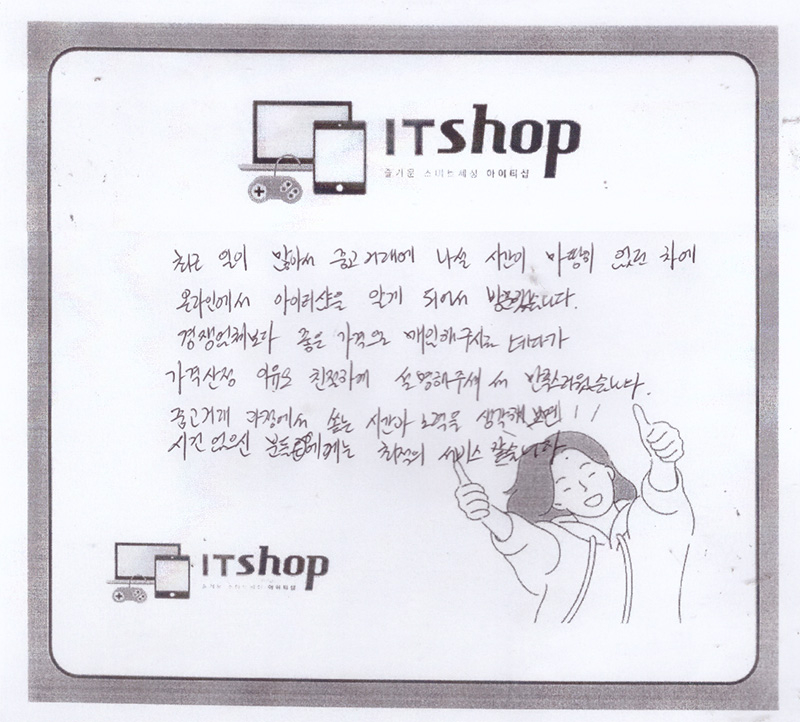 ITshop
즐거운 스마트세상 아이티샵
최근 일이 많아서 중고거래에 나설 시간이 마땅히 없던 차에
온라인에서 아이티샵을 알게 되어서 방문했습니다.
경쟁업체보다 좋은 가격으로 매입해주시는 데다가
가격산정 이유도 친절하게 설명해주셔서 만족스러웠습니다.
중고거래 과정에서 쏟는 시간과 노력을 생각해 보면!!
시간 없으신 분들에게는 최적의 서비스 같습니다
ITshop
아이티샵